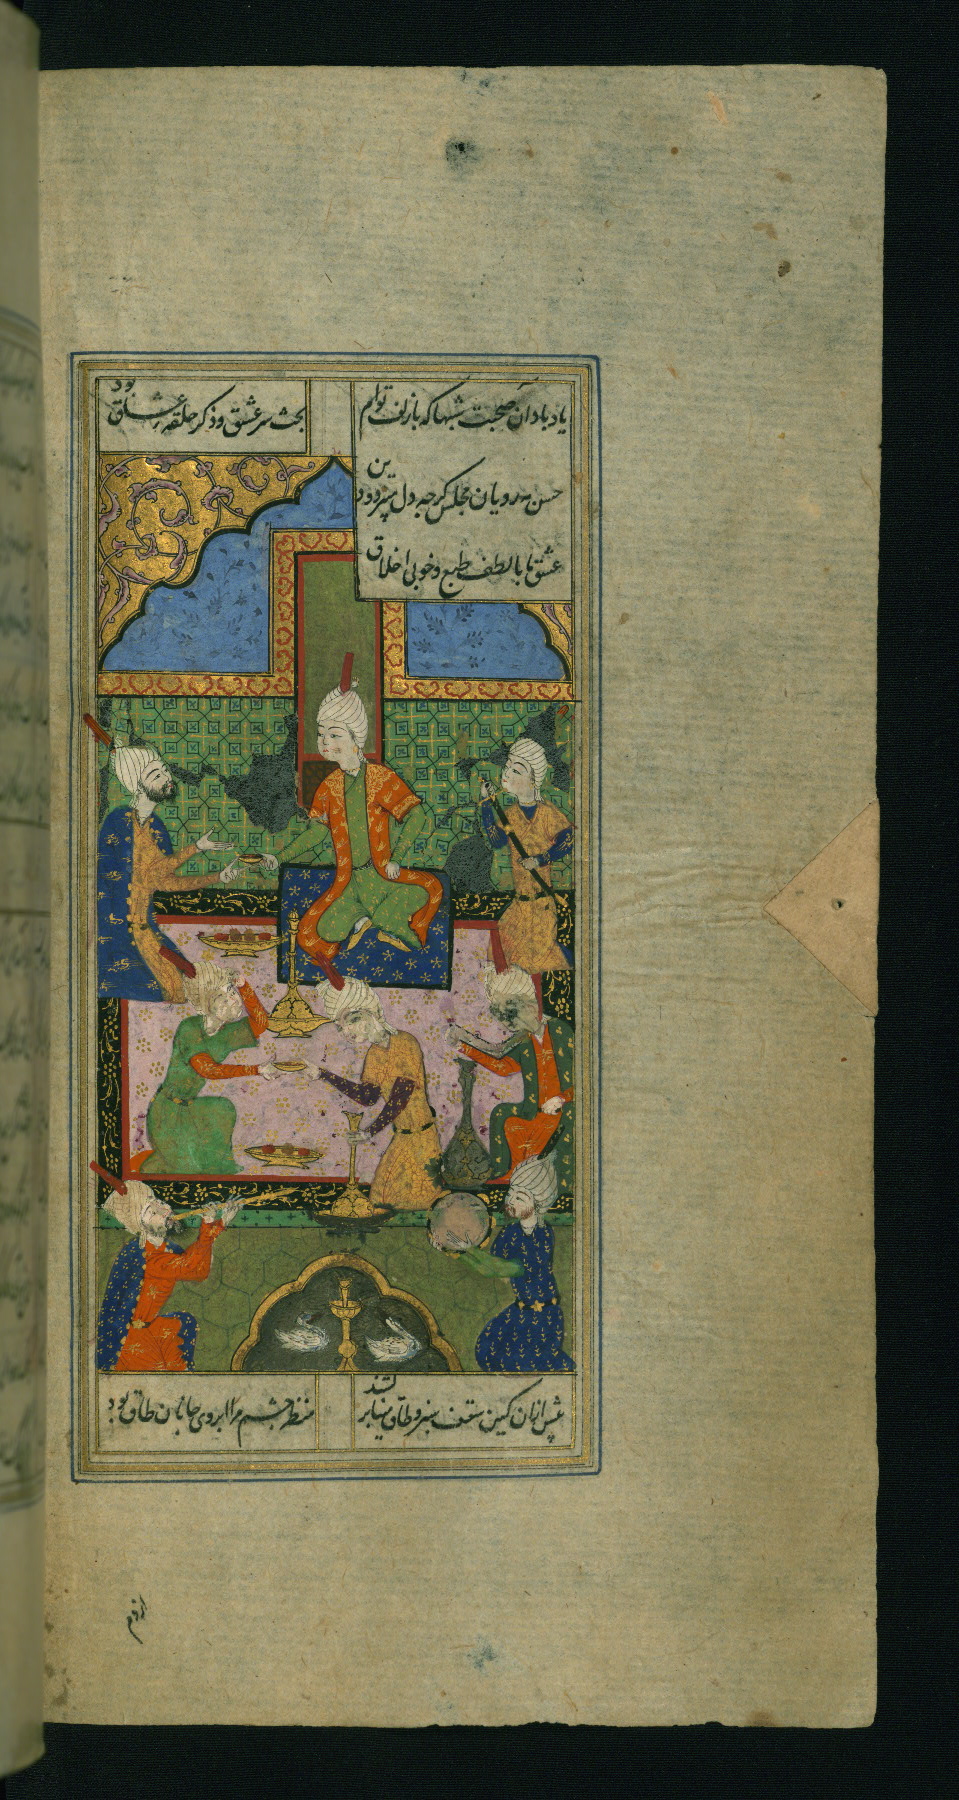 یاد باد آن صحبت شبها که با زلف توام
بحث سر عشق و ذکر حلقه عشاق بود
حسن مه رویان مجلس گرچه دل میبرد و دین
عشق ما با لطف طبع و خوبی اخلاق
پیش ازان کین سقف سبز و طاق مینا بر کشند
منظر چشم مرا ابروی جانان طاق بود
از دم